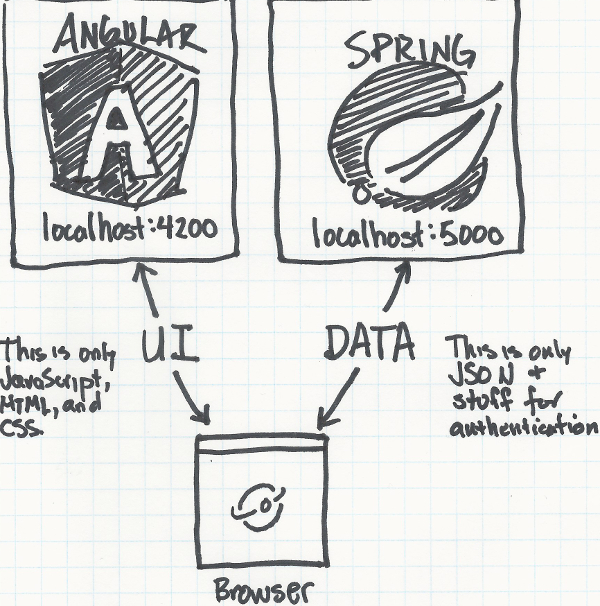 ANGULAR
A
localhost:4200
SPRING
localhost:5000
UI
DATA
This is only
JavaScript,
HTML, and
CSS.
This is only
JSON +
stuff for
authentication
Browser